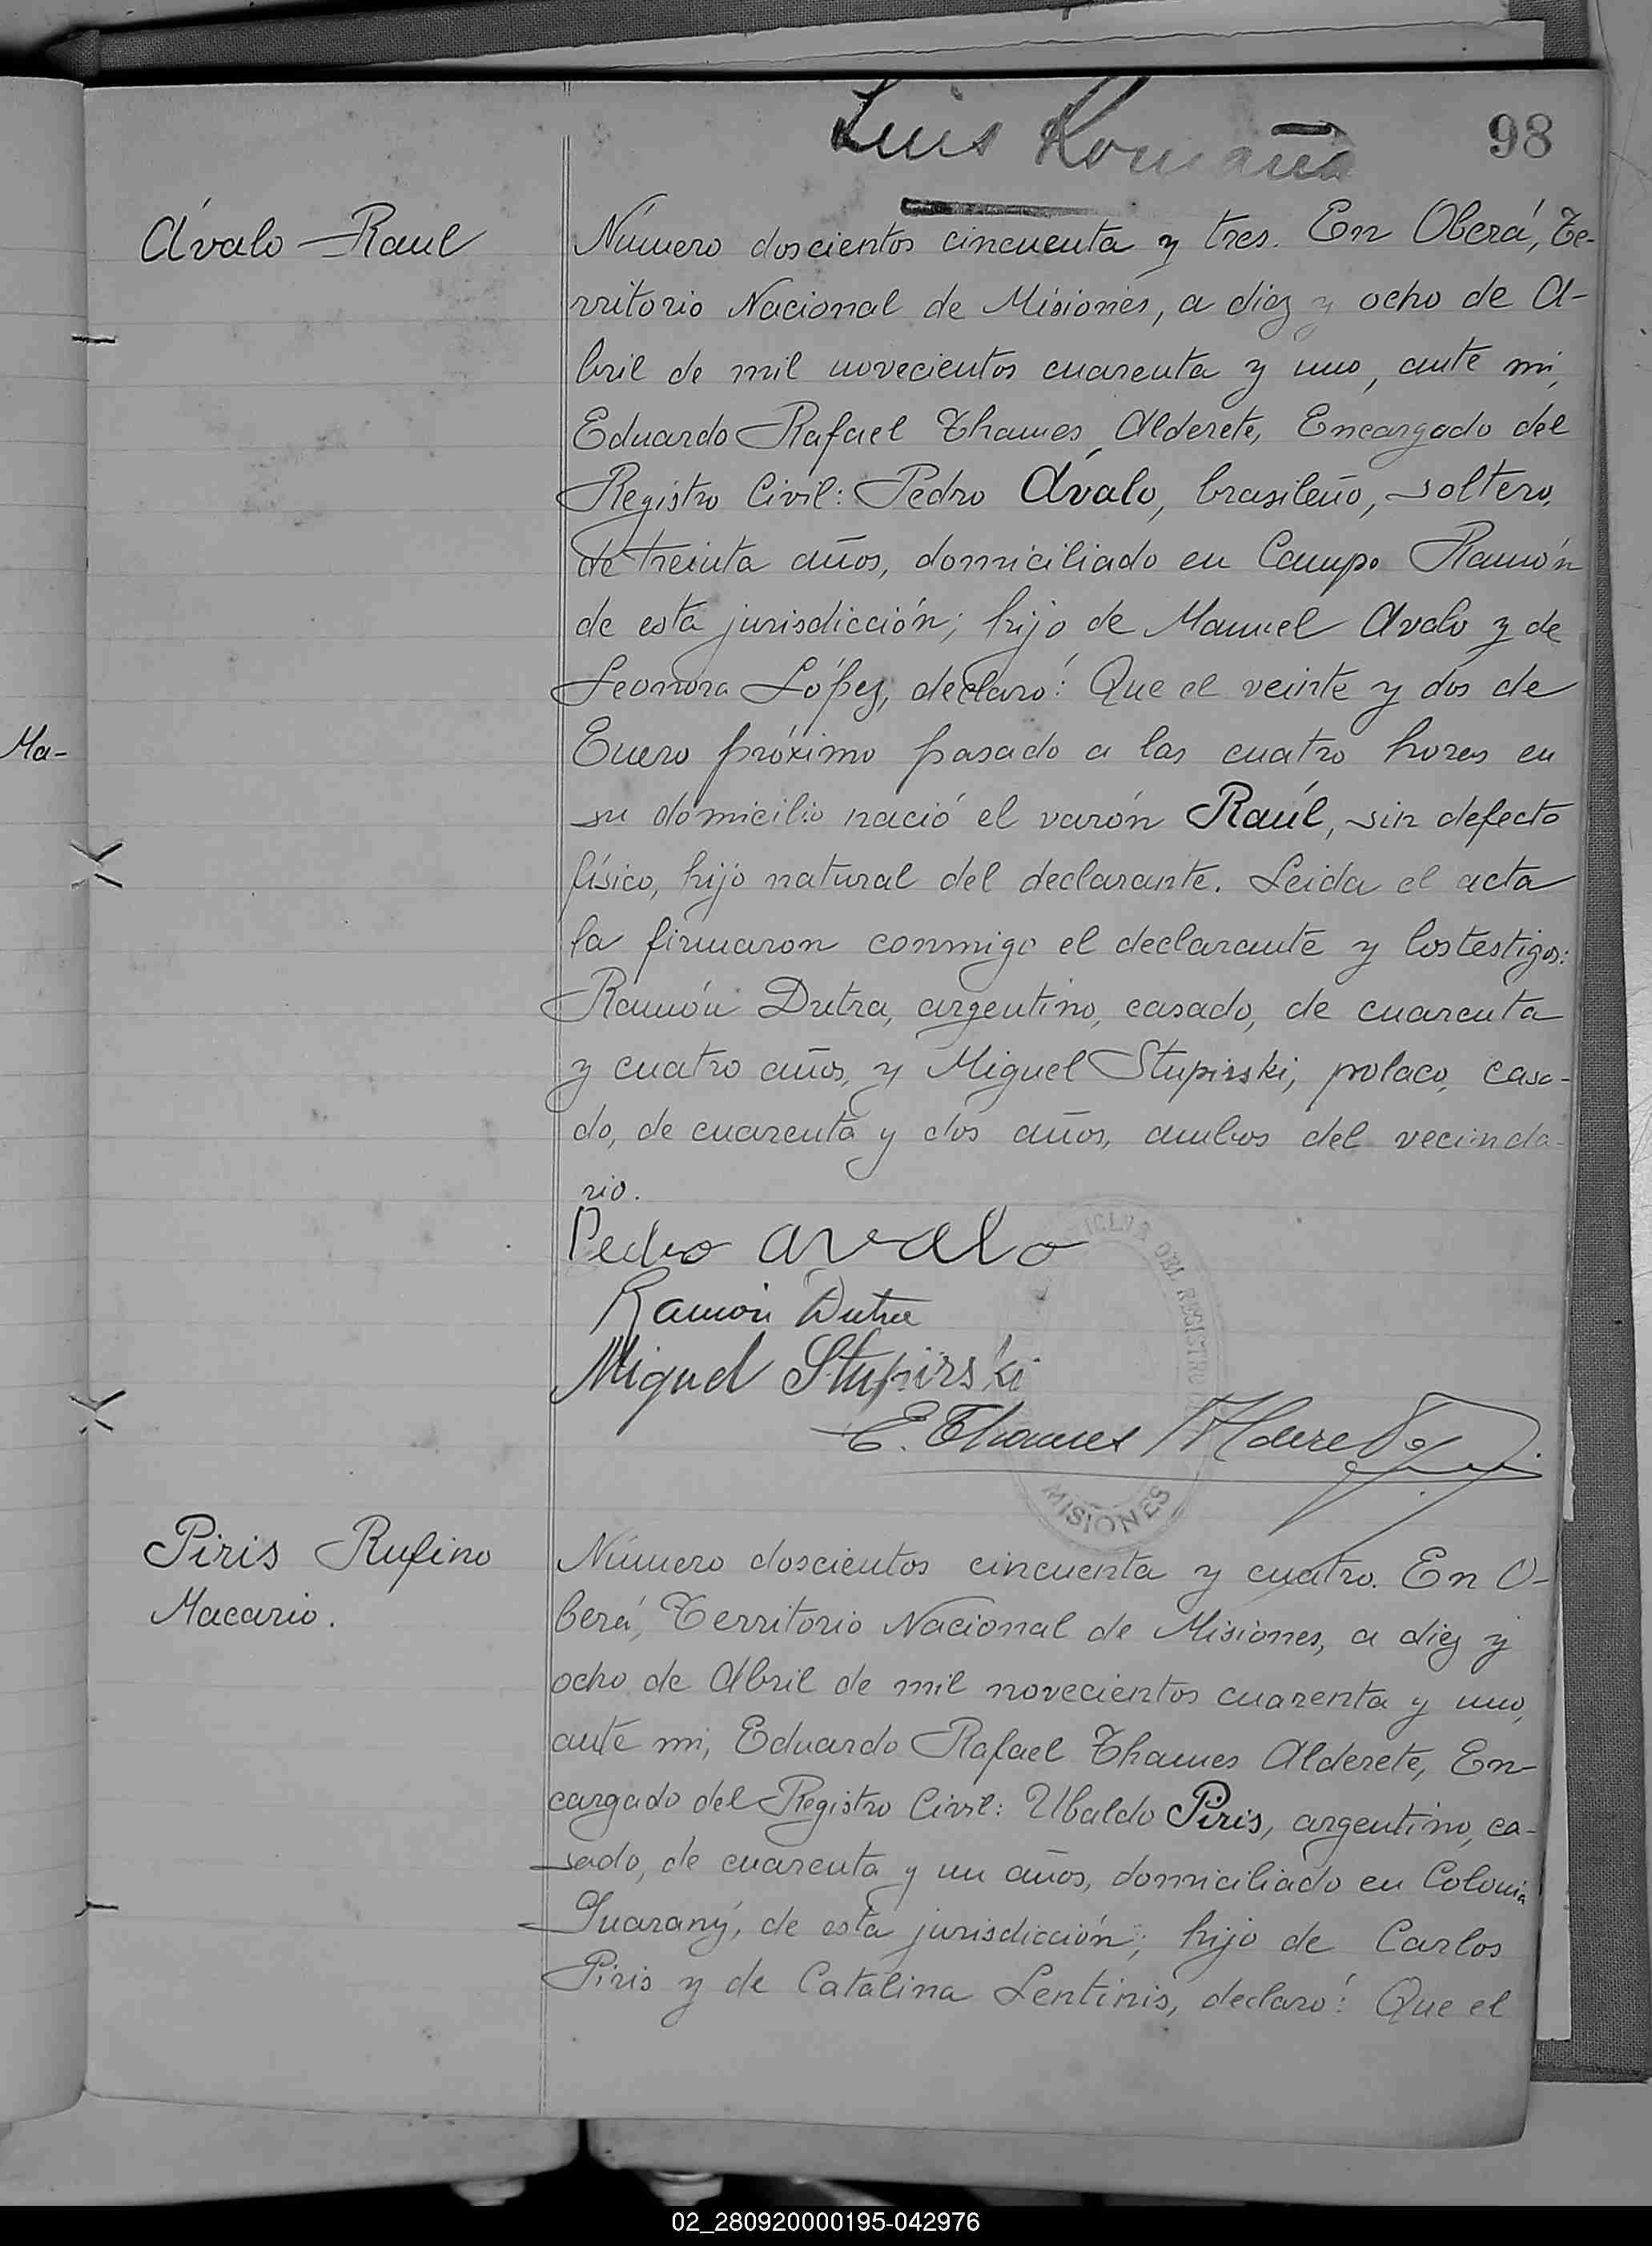 Luis Romaña
98
Ávalo Raul
Número doscientos cincuenta y tres. En Oberá, Te-
rritorio Nacional de Misiones, a diez y ocho de A-
bril de mil novecientos cuarenta y uno, ante mi,
Eduardo Rafael Thames Alderete, Encargado del
Registro Civil: Pedro Ávalo, brasileño, soltero,
de treinta años, domiciliado en Campo Ramón
de esta jurisdicción; hijo de Manuel Avalo y de
Leonora López, declaró: Que el veinte y dos de
Enero próximo pasado a las cuatro horas en
su domicilio nació el varón Raúl, sin defecto
físico, hijo natural del declarante. Leida el acta
la firmaron conmigo el declarante y los testigos:
Ramón Dutra, argentino, casado, de cuarenta
y cuatro años, y Miguel Stupirski, polaco, casa-
do, de cuarenta y dos años, ambos del vecinda-
rio.
Pedro avalo
Ramón Dutra
Miguel Stupirski
E. Thames Alderete
DEL REGISTRO
MISIONES
Ma-
Piris Rufino
Macario.
Número doscientos cincuenta y cuatro. En O-
berá, Territorio Nacional de Misiones, a diez y
ocho de Abril de mil novecientos cuarenta y uno,
ante mi, Eduardo Rafael Thames Alderete, En-
cargado del Registro Civil: Ubaldo Piris, argentino, ca-
sado, de cuarenta y un años, domiciliado en Colonia
Guarany, de esta jurisdicción; hijo de Carlos
Piris y de Catalina Lentinis, declaró: Que el
02_280920000195-042976